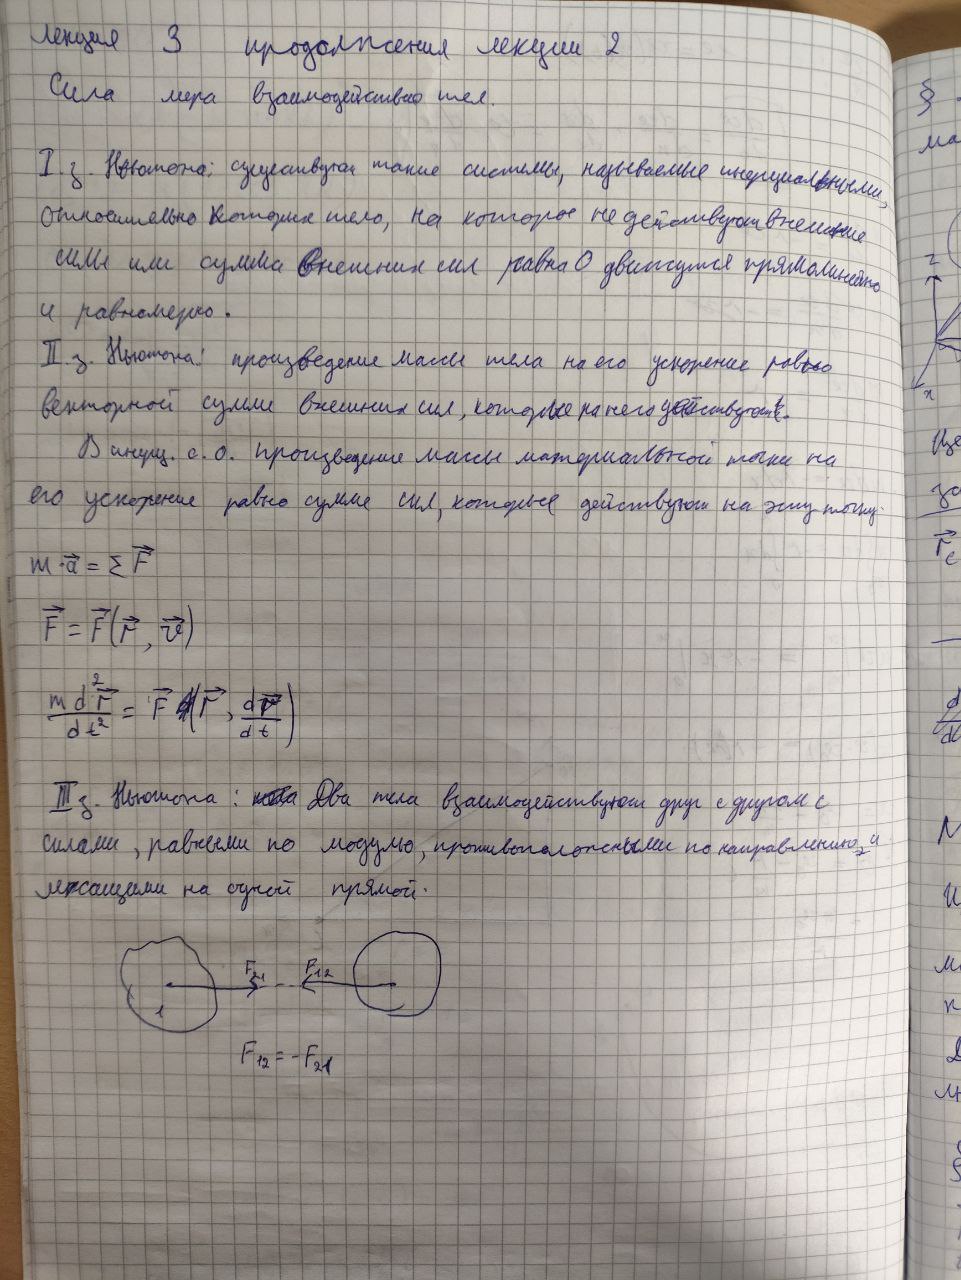 лекция 3 продолжения лекции 2
Сила мера взаимодействия тел.
I. з. Ньютона: существуют такие системы, называемые инерциальными,
относительно которых тело, на которое не действуют внешние
силы или сумма внешних сил равна 0 движутся прямолинейно
и равномерно.
II. з. Ньютона: произведение массы тела на его ускорение равно
векторной сумме внешних сил, которые на него действуют.
В инерц. с. о. произведение массы материальной точки на
его ускорение равно сумме сил, которые действуют на эту точку.
m·a⃗ = Σ F⃗
F⃗ = F⃗(r⃗, v⃗)
m d²r⃗/dt² = F⃗ (r⃗, dr⃗/dt)
III з. Ньютона: Два тела взаимодействуют друг с другом с
силами, равными по модулю, противоположными по направлению, и
лежащими на одной прямой.
F₂₁ F₁₂
1
F₁₂ = -F₂₁
§
ма
z
x
Це
за
r⃗c
d
dt
М
И
ми